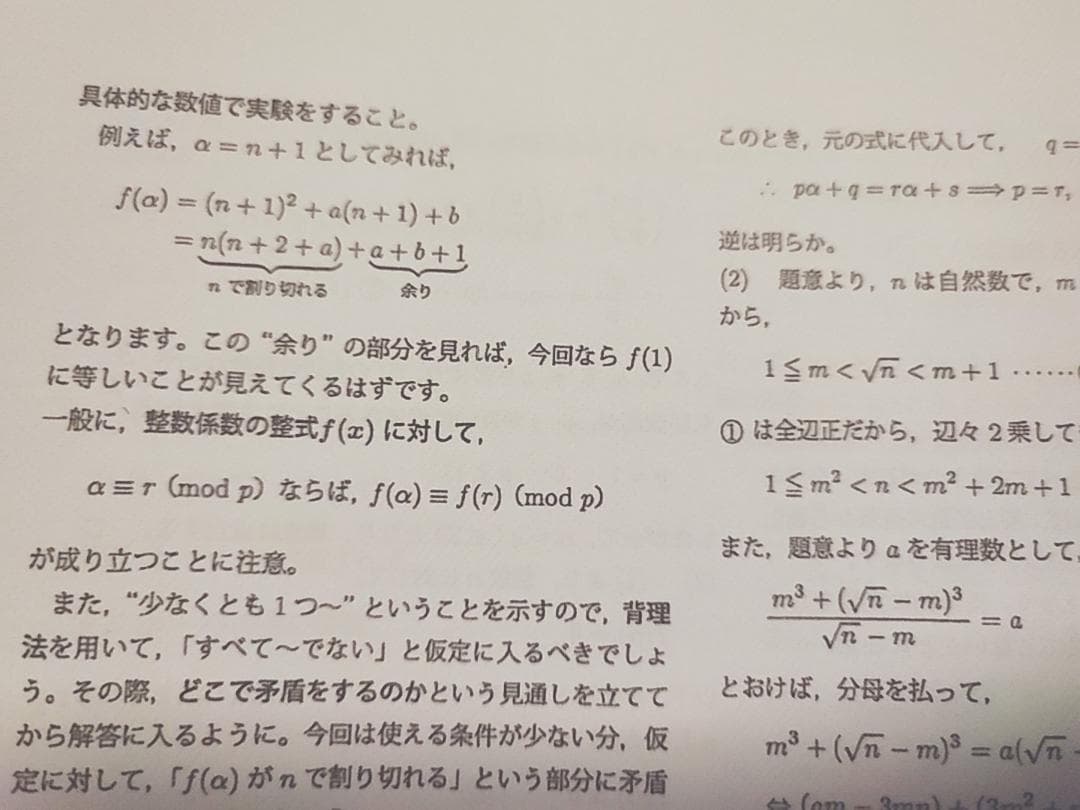 具体的な数値で実験をすること。
例えば，α＝n＋1としてみれば，
f(α)＝(n＋1)²＋a(n＋1)＋b
＝n(n＋2＋a)＋a＋b＋1
n で割り切れる 余り
となります。この “余り” の部分を見れば，今回なら f(1)
に等しいことが見えてくるはずです。
一般に，整数係数の整式f(x) に対して，
α≡r (mod p) ならば，f(α)≡f(r) (mod p)
が成り立つことに注意。
また，“少なくとも1つ～” ということを示すので，背理
法を用いて，「すべて～でない」と仮定に入るべきでしょ
う。その際，どこで矛盾をするのかという見通しを立てて
から解答に入るように。今回は使える条件が少ない分，仮
定に対して，「f(α) が n で割り切れる」という部分に矛盾
このとき，元の式に代入して， q＝
∴ pα＋q＝rα＋s⟹p＝r,
逆は明らか。
(2) 題意より，n は自然数で，m
から，
1≦m＜√n＜m＋1 ……
① は全辺正だから，辺々2乗して
1≦m²＜n＜m²＋2m＋1
また，題意より a を有理数として，
(m³＋(√n－m)³)/(√n－m)＝a
とおけば，分母を払って，
m³＋(√n－m)³＝a(√n